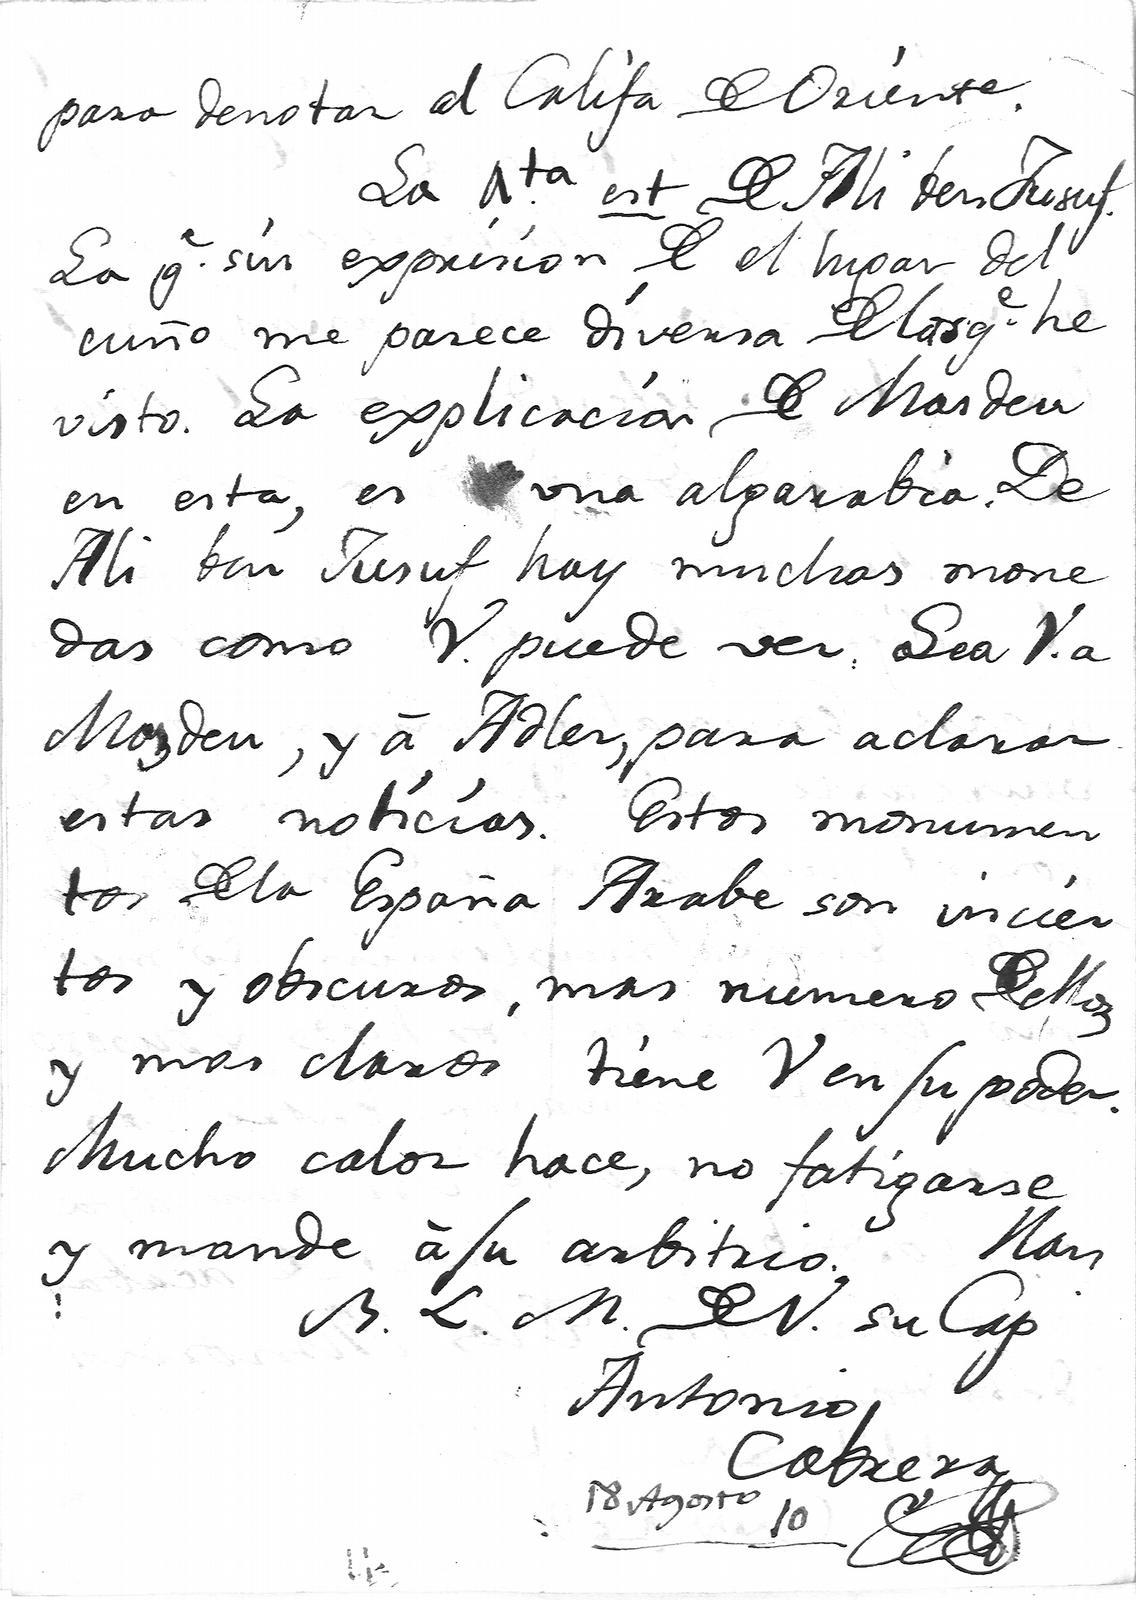 para denotar al Califa de Oriente.
La 4.ta est de Ali ben Jusuf.
La q.e sin expresion de el lugar del
cuño me parece diversa de las q.e he
visto. La explicacion de Masdeu
en esta, es una algarabia. De
Ali ben Jusuf hay muchas mone
das como V. puede ver. Lea V. a
Mazdeu, y à Adler, para aclarar
estas noticias. Estos monumen
tos de la España Arabe son incier
tos y obscuros, mas numero de ellos
y mas claros tiene V en su poder.
Mucho calor hace, no fatigarse
y mande à su arbitrio.
B. L. M. de V. su Cap
Antonio
Cabrera
18 Agosto
10